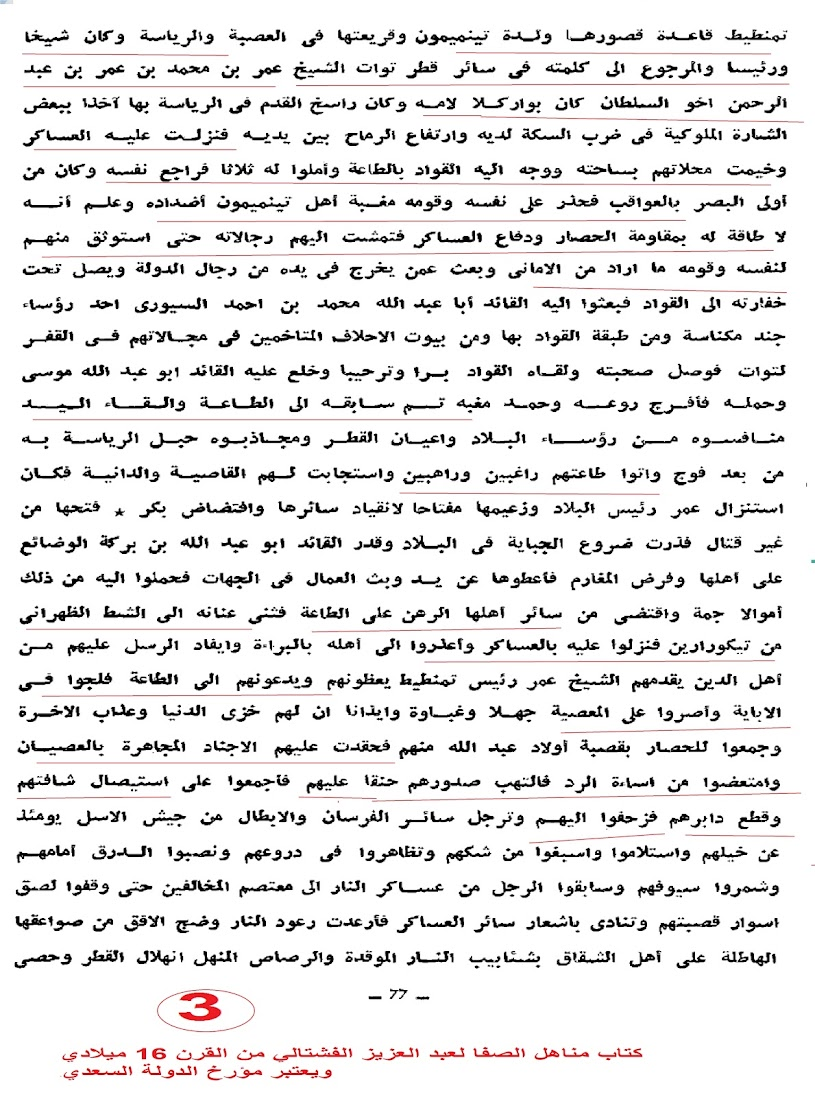 تمنطيط قاعدة قصورها ولدة تينميمون وقريعتها فى العصبة والرياسة وكان شيخا
ورئيسا والمرجوع الى كلمته فى سائر قطر توات الشيخ عمر بن محمد بن عمر بن عبد
الرحمن اخو السلطان كان بواركلا لامه وكان راسخ القدم فى الرياسة بها آخذا ببعض
الشارة الملوكية فى ضرب السكة لديه وارتفاع الرماح بين يديه فنزلت عليه العساكر
وخيمت محلاتهم بساحته ووجه اليه القواد بالطاعة وأملوا له ثلاثا فراجع نفسه وكان من
أولى البصر بالعواقب فحذر على نفسه وقومه مغبة أهل تينميمون أضداده وعلم أنه
لا طاقة له بمقاومة الحصار ودفاع العساكر فتمشت اليهم رجالاته حتى استوثق منهم
لنفسه وقومه ما اراد من الامانى وبعث عمن يخرج فى يده من رجال الدولة ويصل تحت
خفارته الى القواد فبعثوا اليه القائد أبا عبد الله محمد بن احمد السيورى احد رؤساء
جند مكناسة ومن طبقة القواد بها ومن بيوت الاحلاف المتاخمين فى مجالاتهم فى القفر
لتوات فوصل صحبته ولقاه القواد برا وترحيبا وخلع عليه القائد ابو عبد الله موسى
وحمله فأفرج روعه وحمد مغبه تم سابقه الى الطاعة والقاء اليد
منافسوه من رؤساء البلاد واعيان القطر ومجاذبوه حبل الرياسة به
من بعد فوج واتوا طاعتهم راغبين وراهبين واستجابت لهم القاصية والدانية فكان
استنزال عمر رئيس البلاد وزعيمها مفتاحا لانقياد سائرها وافتضاض بكر * فتحها من
غير قتال فذرت ضروع الجباية فى البلاد وقدر القائد ابو عبد الله بن بركة الوضائع
على أهلها وفرض المغارم فأعطوها عن يد وبث العمال فى الجهات فحملوا اليه من ذلك
أموالا جمة واقتضى من سائر أهلها الرهن على الطاعة فثنى عنانه الى الشط الظهرانى
من تيكورارين فنزلوا عليه بالعساكر وأعذروا الى أهله بالبراءة وايفاد الرسل عليهم من
أهل الدين يقدمهم الشيخ عمر رئيس تمنطيط يعظونهم ويدعونهم الى الطاعة فلجوا فى
الاباية وأصروا على المعصية جهلا وغباوة وايذانا ان لهم خزى الدنيا وعذاب الاخرة
وجمعوا للحصار بقصبة أولاد عبد الله منهم فحقدت عليهم الاجناد المجاهرة بالعصيان
وامتعضوا من اساءة الرد فالتهب صدورهم حنقا عليهم فأجمعوا على استيصال شافتهم
وقطع دابرهم فزحفوا اليهم وترجل سائر الفرسان والابطال من جيش الاسل يومئذ
عن خيلهم واستلاموا واسبغوا من شكهم وتظاهروا فى دروعهم ونصبوا الدرق أمامهم
وشمروا سيوفهم وسابقوا الرجل من عساكر النار الى معتصم المخالفين حتى وقفوا لصق
اسوار قصبتهم وتنادى باشعار سائر العساكر فأرعدت رعود النار وضج الافق من صواعقها
الهاطلة على أهل الشقاق بشئابيب النار الموقدة والرصاص المنهل انهلال القطر وحصى
– 77 –
3
كتاب مناهل الصفا لعبد العزيز الفشتالي من القرن 16 ميلادي
ويعتبر مؤرخ الدولة السعدي